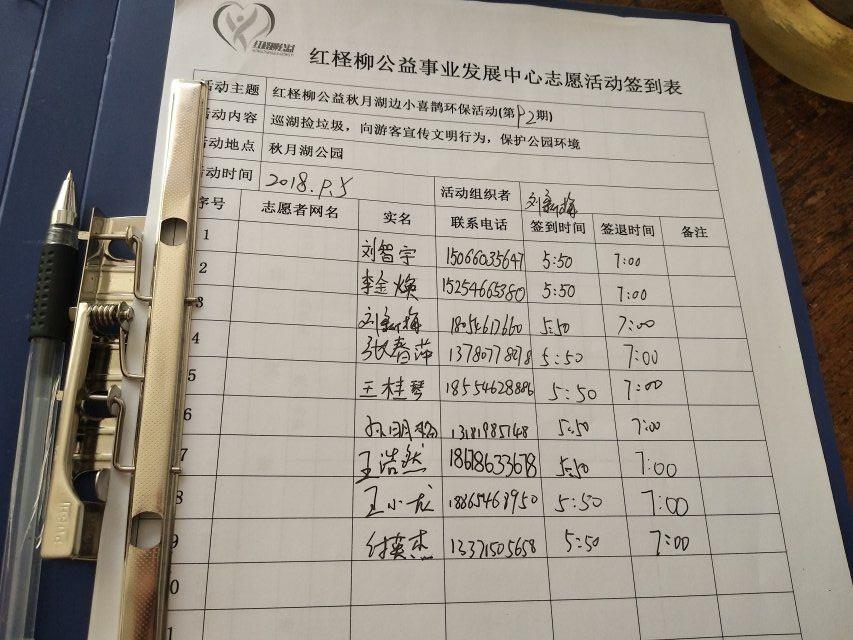 红柽柳公益事业发展中心志愿活动签到表
活动主题 红柽柳公益秋月湖边小喜鹊环保活动(第P2期)
活动内容 巡湖捡垃圾，向游客宣传文明行为，保护公园环境
活动地点 秋月湖公园
活动时间 2018.P.5 活动组织者 刘新梅
序号 志愿者网名 实名 联系电话 签到时间 签退时间 备注
1 刘智宇 15066035647 5:50 7:00
2 李金焕 15254665380 5:50 7:00
3 刘新梅 18054617660 5:50 7:00
4 张春萍 13780778978 5:50 7:00
5 王桂琴 18554628886 5:50 7:00
6 5:50 7:00
7 王浩然 18678633678 5:50 7:00
8 王小龙 18865463950 5:50 7:00
9 付英杰 13371505658 5:50 7:00
0
1